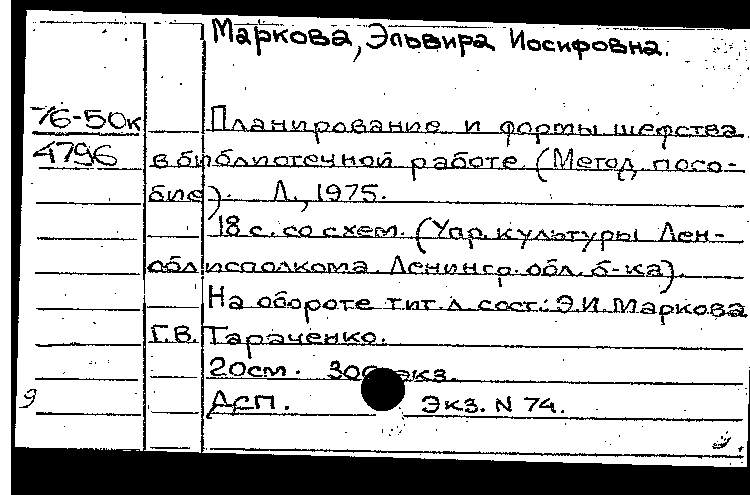 Маркова, Эльвира Иосифовна.
76-50к
4796
Планирование и формы шефства
в библиотечной работе (Метод. посо-
бие). Л., 1975.
18 с. со схем. (Упр. культуры Лен-
облисполкома. Ленингр. обл. б-ка).
На обороте тит. л. сост.: Э.И. Маркова
Г.В. Тараченко.
20см. 300 экз.
Дсп. Экз. N 74.
9